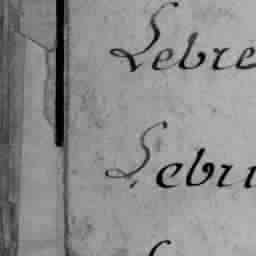 Lebre
Lebru